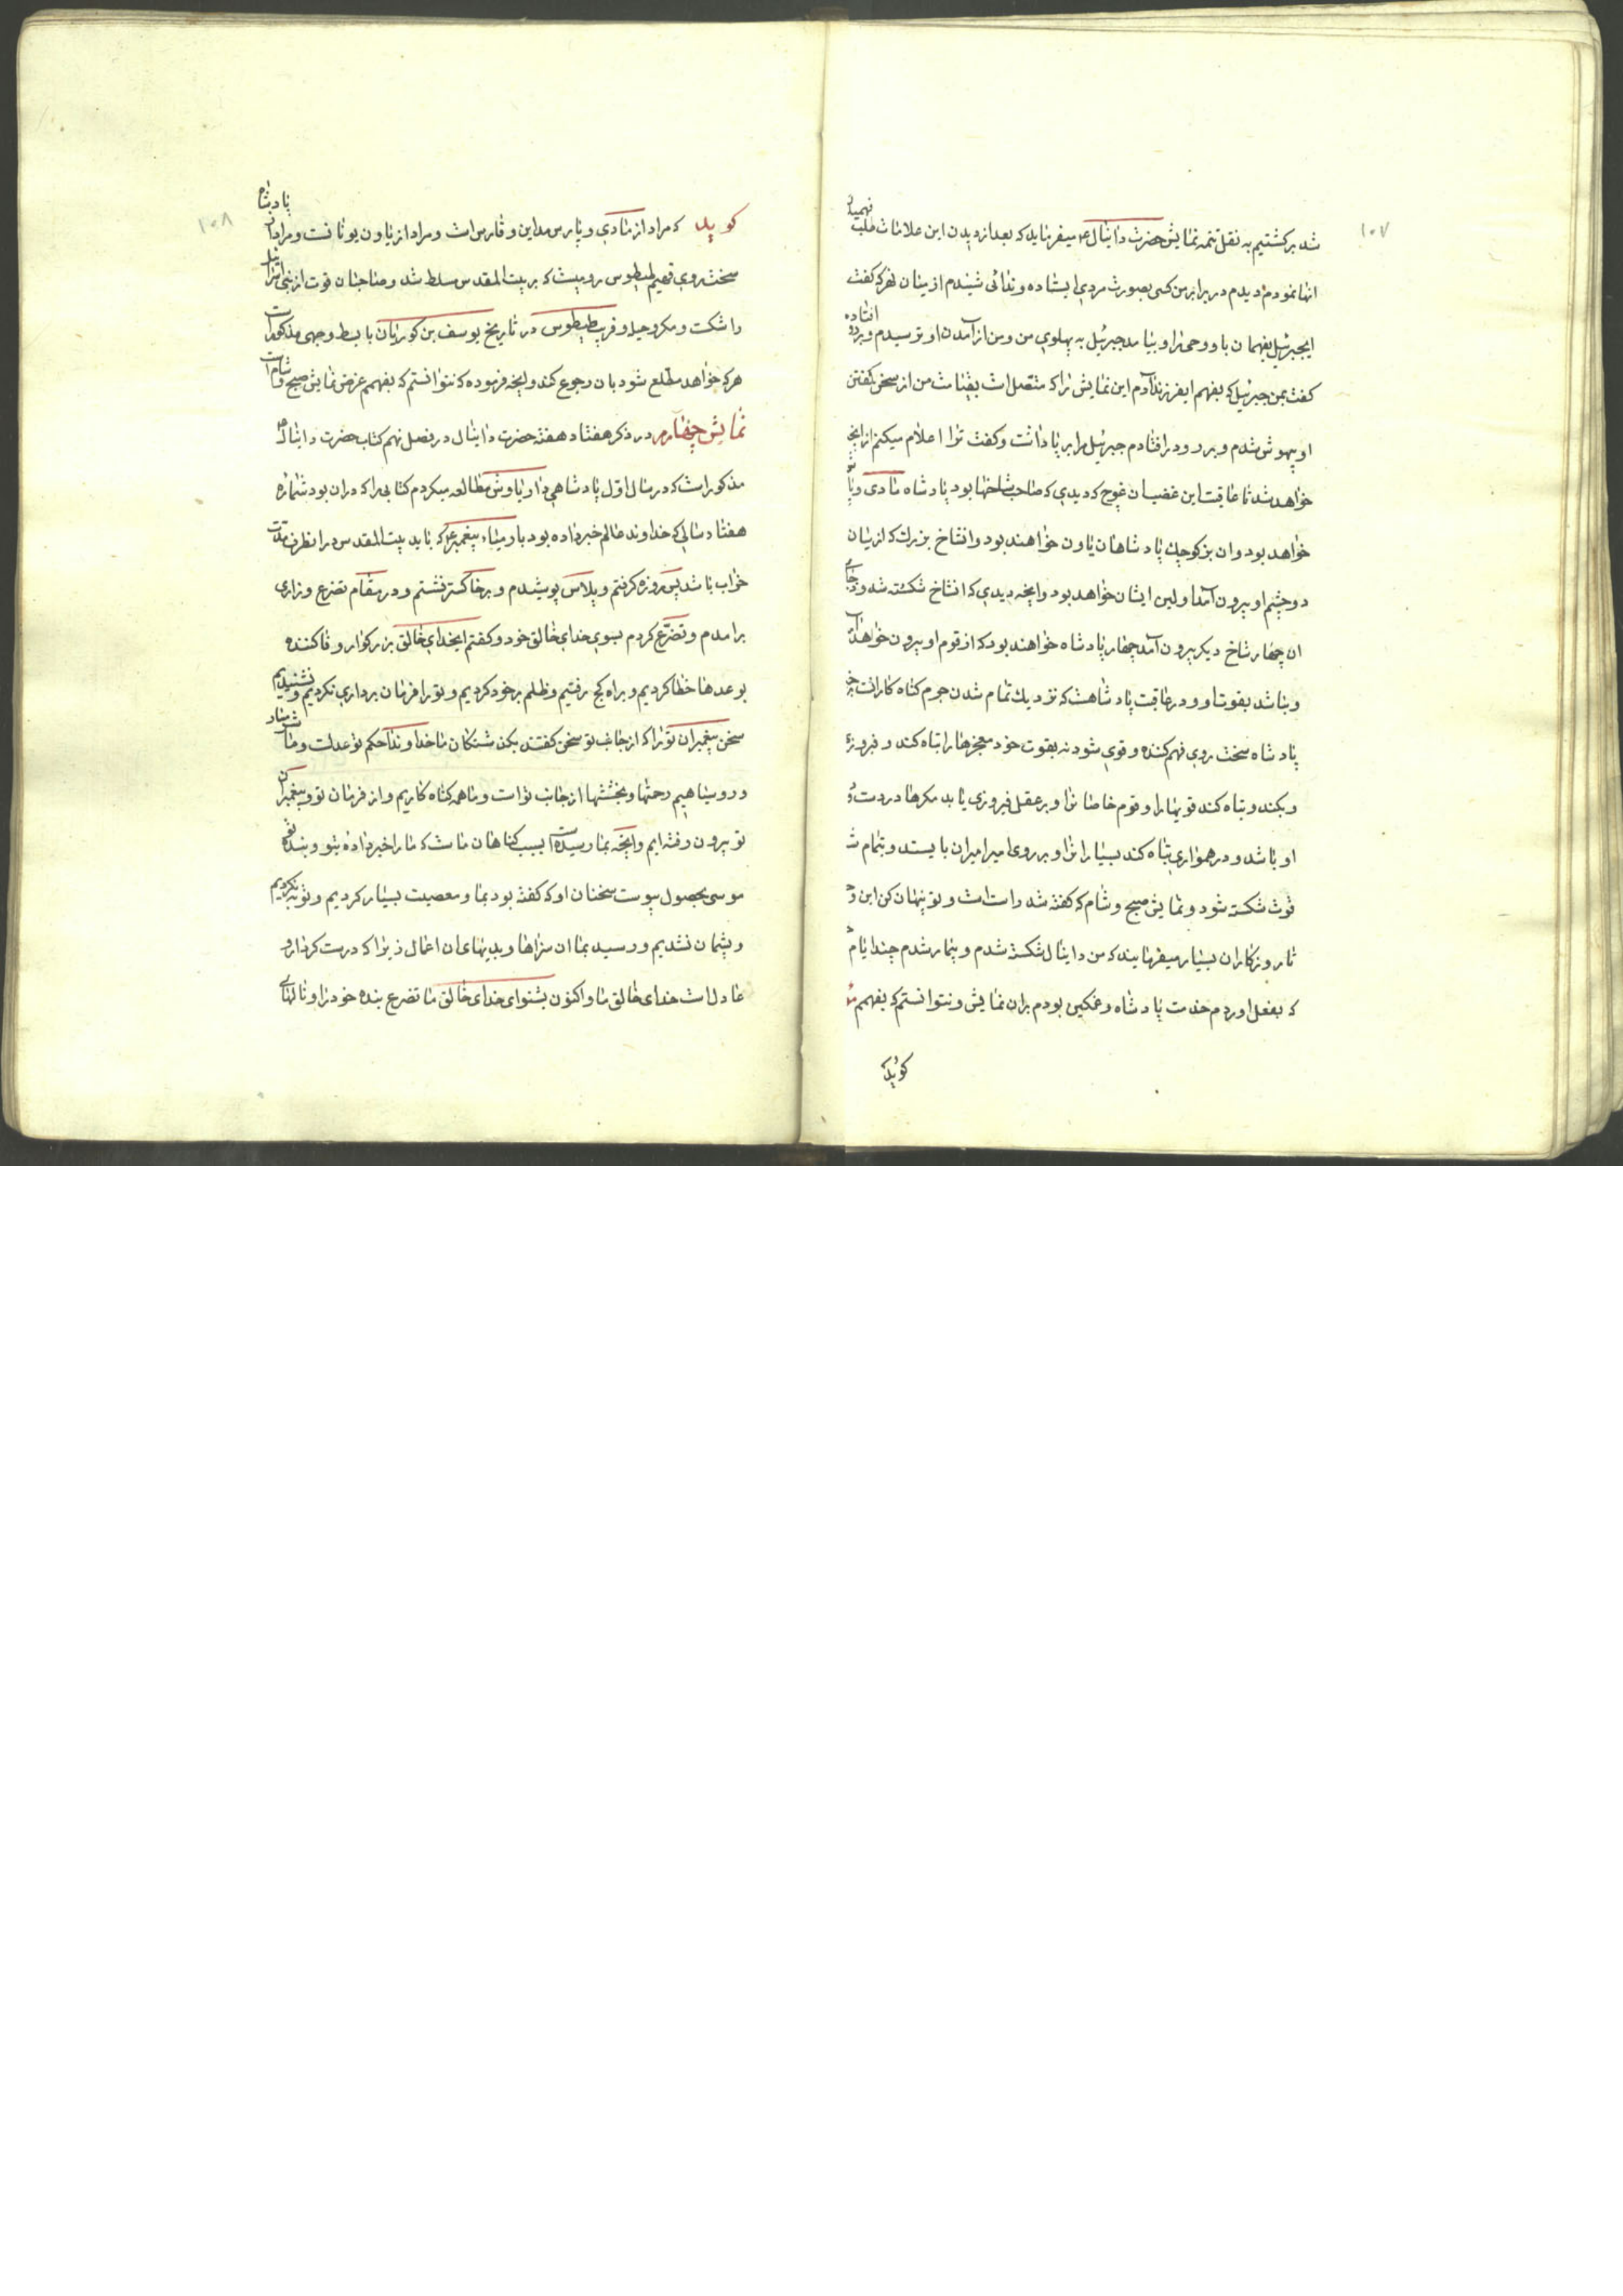 ۱۰۷
شد برکشتیم به نقل تتمه نمایش حضرت دانیال ع میفرماید که بعد از دیدن این علامات طلب فهمیدن
انها نمودم دیدم در برابر من کسی بصورت مردی ایستاده و ندائی شنیدم از میان نهر که کفت
ایجبرئیل بفهمان باو وحی را و بیامد جبرئیل به پهلوی من و من از آمدن او ترسیدم و بر رو افتاده
کفت بمن جبرئیل که بفهم ایفرزند آدم این نمایش را که متصل است بقیامت من از سخن کفتن
او بیهوش شدم و بر رو در افتادم جبرئیل مرا بر پا داشت و کفت ترا اعلام میکنم از انچه
خواهد شد تا عاقبت این غضبان غوج که دیدی که صاحب شاخها بود پادشاه مادی و پا
خواهد بود و ان بز کوچک پادشاهان یاون خواهند بود و انشاخ بزرک که از میان
دو چشم او بیرون آمد اولین ایشان خواهد بود و انچه دیدی که انشاخ شکسته شد و بجای
ان چهار شاخ دیکر بیرون آمد چهار پادشاه خواهند بود که از قوم او بیرون خواهند آمد
و نباشد بقوت او و در عاقبت پادشاهت که نزدیک تمام شدن جرم کناه کارانت
پادشاه سخت روی فهم کننده و قوی شود نه بقوت خود معجزها را تباه کند و فیروزی
و بکند و تباه کند قویها را و قوم خاصا نرا و بر عقل فیروزی یابد مکرها در دست
او باشد و در همواری تباه کند بسیار انرا و بر روی امیر امیران بایستد و بتمام
قوت شکسته شود و نمایش صبح و شام که کفته شد راست است و تو پنهان کن این
تا روزکاران بسیار میفرمایند که من دانیال شکسته شدم و بیمار شدم چند ایام
که بفعل اوردم خدمت پادشاه و غمکین بودم بران نمایش و نتوانستم که بفهمم
کوید
۱۰۸
کوید که مراد از مادی و پارس مداین و فارس است و مراد از یاون یونانست و مراد از پادشاه
سخت روی فهیم طیطوس رومیست که بر بیت المقدس مسلط شد و صاحبان قوت از بنی اسرائیل
را شکست و مکر و حیله و فریب طیطوس در تاریخ یوسف بن کوریان با بسط وجهی مذکور است
هر که خواهد مطلع شود بان رجوع کند و انچه فرموده که نتوانستم که بفهمم غرض نمایش صبح و شام است
نمایش چهارم در ذکر هفتاد هفته حضرت دانیال در فصل نهم کتاب حضرت دانیال ع
مذکور است که در سال اول پادشاهی داریاوش مطالعه میکردم کتابی را که دران بود شماره
هفتاد سالی که خداوند عالم خبر داده بود بارمیاء پیغمبر ع که باید بیت المقدس در انظرف مدت
خراب باشد پس روزه کرفتم و پلاس پوشیدم و بر خاکستر نشستم و در مقام تضرع و زاری
برامدم و تضرع کردم بسوی خدای خالق خود و کفتم ایخدای خالق بزرکوار و فا کننده
بوعدها خطا کردیم و براه کج رفتیم و ظلم بر خود کردیم و تو را فرمان برداری نکردیم و نشنیدیم
سخن پیغمبران تو را که از جانب تو سخن کفتند بکن شتکان ما خداوندا حکم تو عدلت و ما شرمسار
و رو سیاهیم رحمتها و بخششها از جانب تو است و ما همه کناه کاریم و از فرمان تو و پیغمبران
تو بیرون رفته ایم و انچه بما رسیده است بسبب کناهان ماست که ما را خبر داده بتو و بنده تو
موسی بحصول پیوست سخنان او که کفته بود بما و معصیت بسیار کردیم و توبه نکردیم
و پشیمان نشدیم و رسید بما ان سزاها و بدیهای ان اعمال زیرا که درست کردار و
عادل است خدای خالق ما و اکنون بشنو ای خدای خالق ما تضرع بنده خود را و نالهای